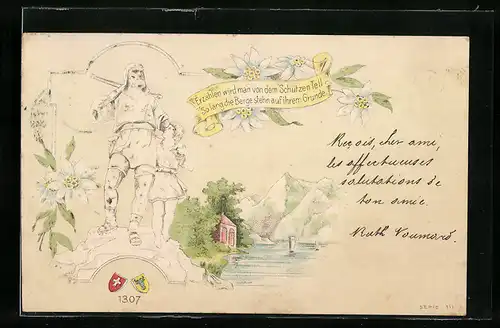 Erzählen wird man von dem Schützen Tell
So lang die Berge stehn auf Ihrem Grunde.
Reçois, cher ami,
les affectueuses
salutations de
ton amie.
Ruth Voumard.
1307